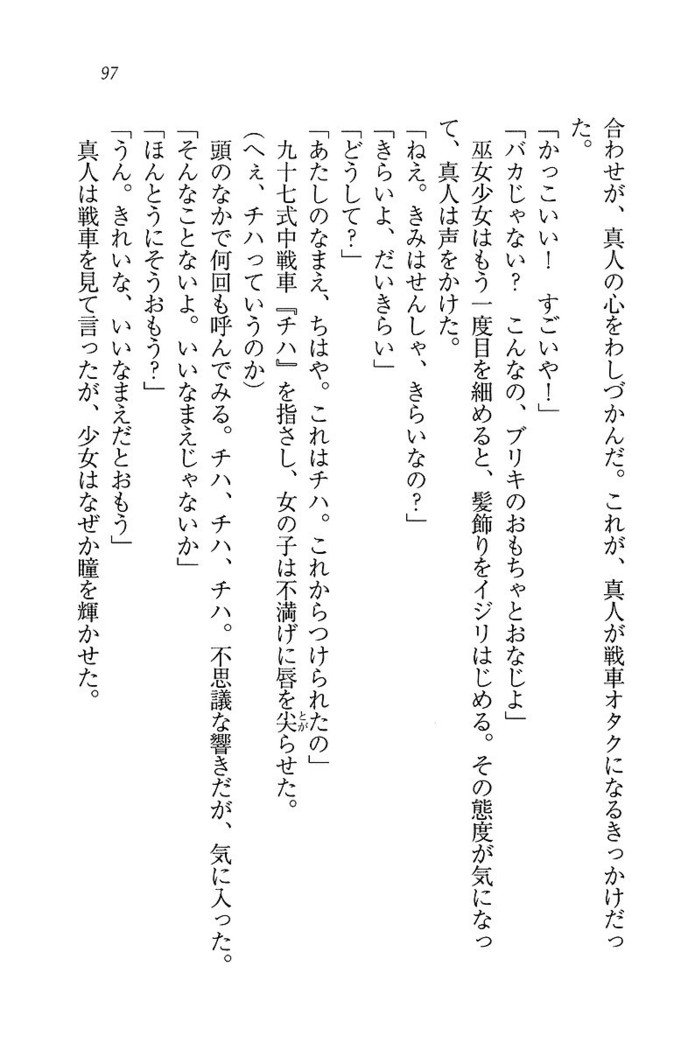 97
合わせが、真人の心をわしづかんだ。これが、真人が戦車オタクになるきっかけだっ
た。
「かっこいい！　すごいや！」
「バカじゃない？　こんなの、ブリキのおもちゃとおなじよ」
　巫女少女はもう一度目を細めると、髪飾りをイジリはじめる。その態度が気になっ
て、真人は声をかけた。
「ねえ。きみはせんしゃ、きらいなの？」
「きらいよ、だいきらい」
「どうして？」
「あたしのなまえ、ちはや。これはチハ。これからつけられたの」
　九十七式中戦車『チハ』を指さし、女の子は不満げに唇を尖らせた。
とが
（へぇ、チハっていうのか）
　頭のなかで何回も呼んでみる。チハ、チハ、チハ。不思議な響きだが、気に入った。
「そんなことないよ。いいなまえじゃないか」
「ほんとうにそうおもう？」
「うん。きれいな、いいなまえだとおもう」
　真人は戦車を見て言ったが、少女はなぜか瞳を輝かせた。